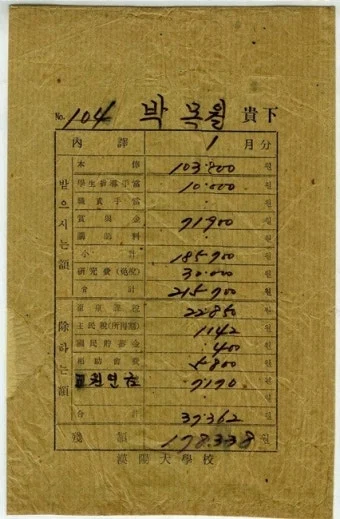 No. 104 박목월 貴下
內譯 1 月分
받으시는額
本俸 103.800 원
學生指導手當 10.000 원
職責手當 · 원
賞與金 71900 원
講師料 · 원
小計 185700 원
硏究費(免稅) 30.000 원
合計 215.700 원
除하는額
22850 원
住民稅(所得割) 1142 원
國民貯蓄金 .400 원
相助會費 5.800 원
교원연금 7170 원
合計 37.362 원
殘額 178.338 원
漢陽大學校